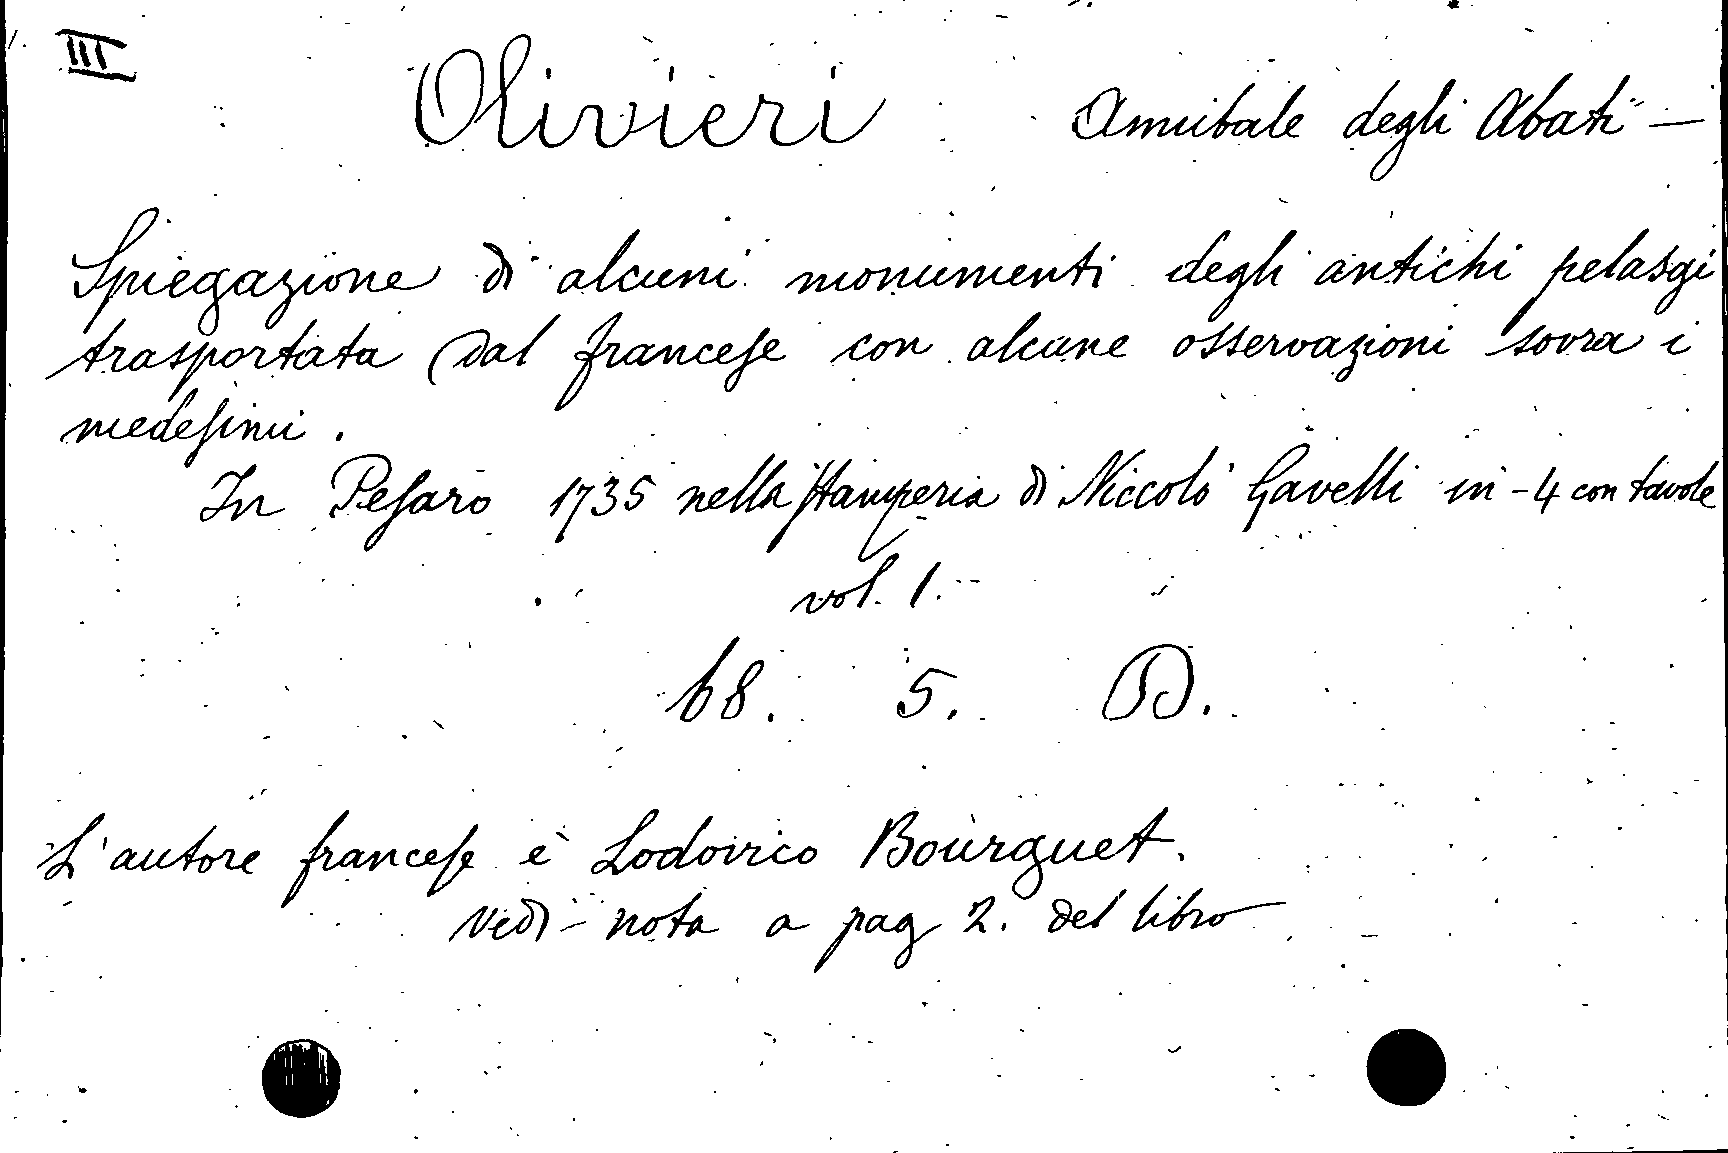 III
Olivieri Annibale degli Abati —
Spiegazione di alcuni monumenti degli antichi pelasgi
trasportata dal francese con alcune osservazioni sovra i
medesimi.
In Pesaro 1735 nella stamperia di Niccolò Gavelli in-4 con tavole
vol. 1.
68. 5. D.
L'autore francese è Lodovico Bourguet.
Vedi nota a pag 2. del libro